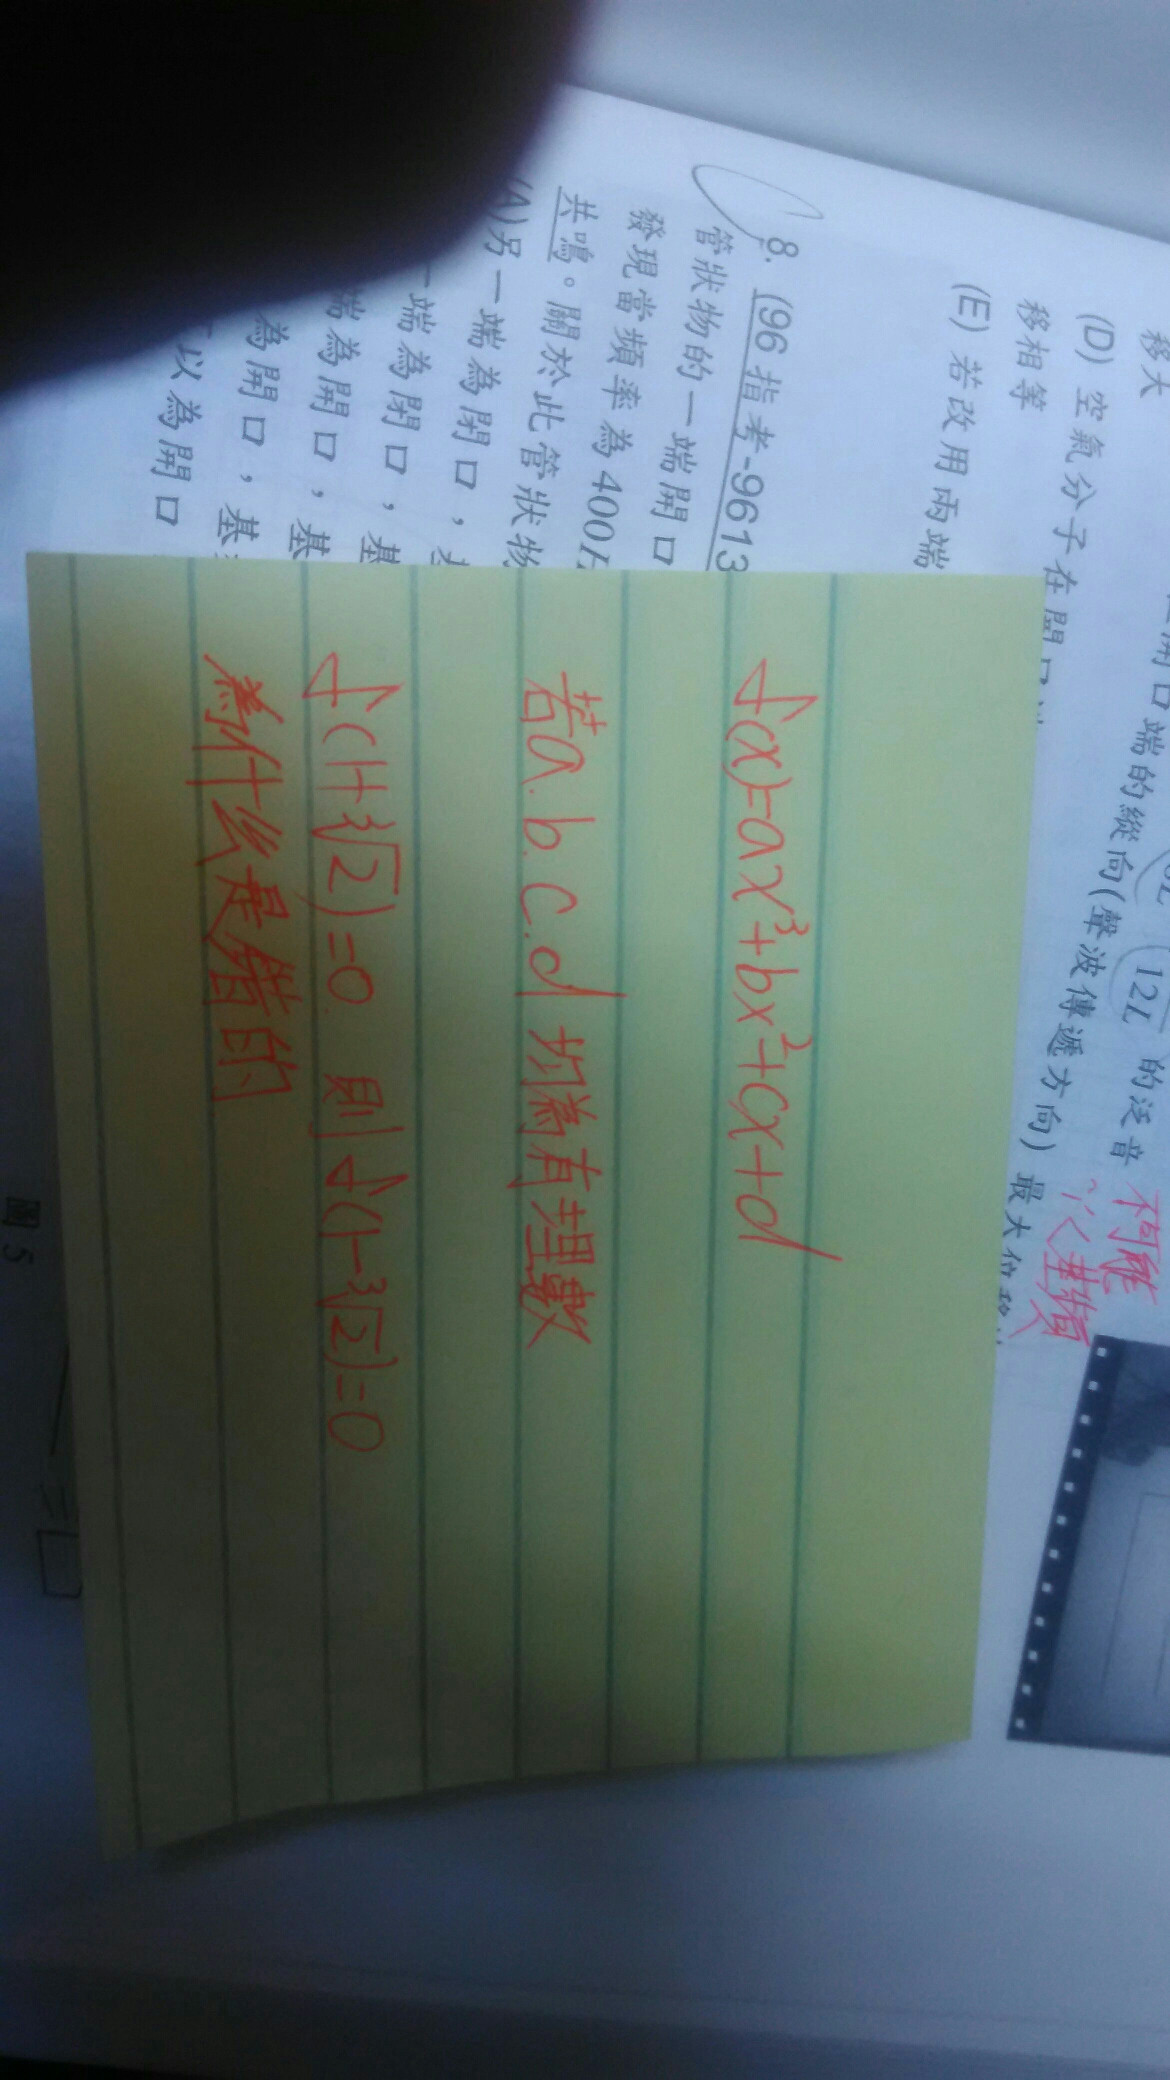 移大
(D) 空氣分子在開口
的縱向(聲波傳遞方向) 最大位移
移相等
(E) 若改用兩端
開口端的
12L 的泛音
基頻
8. (96 指考-9613
管狀物的一端開口
發現當頻率為400
共鳴。關於此管狀物
(A)另一端為閉口,
一端為閉口,基
端為開口,基
為開口,基
以為開口
f(x)=ax³+bx²+cx+d
若a.b.c.d 均為有理數
f(1+³√2)=0. 則 f(1-³√2)=0
為什么是錯的
圖5